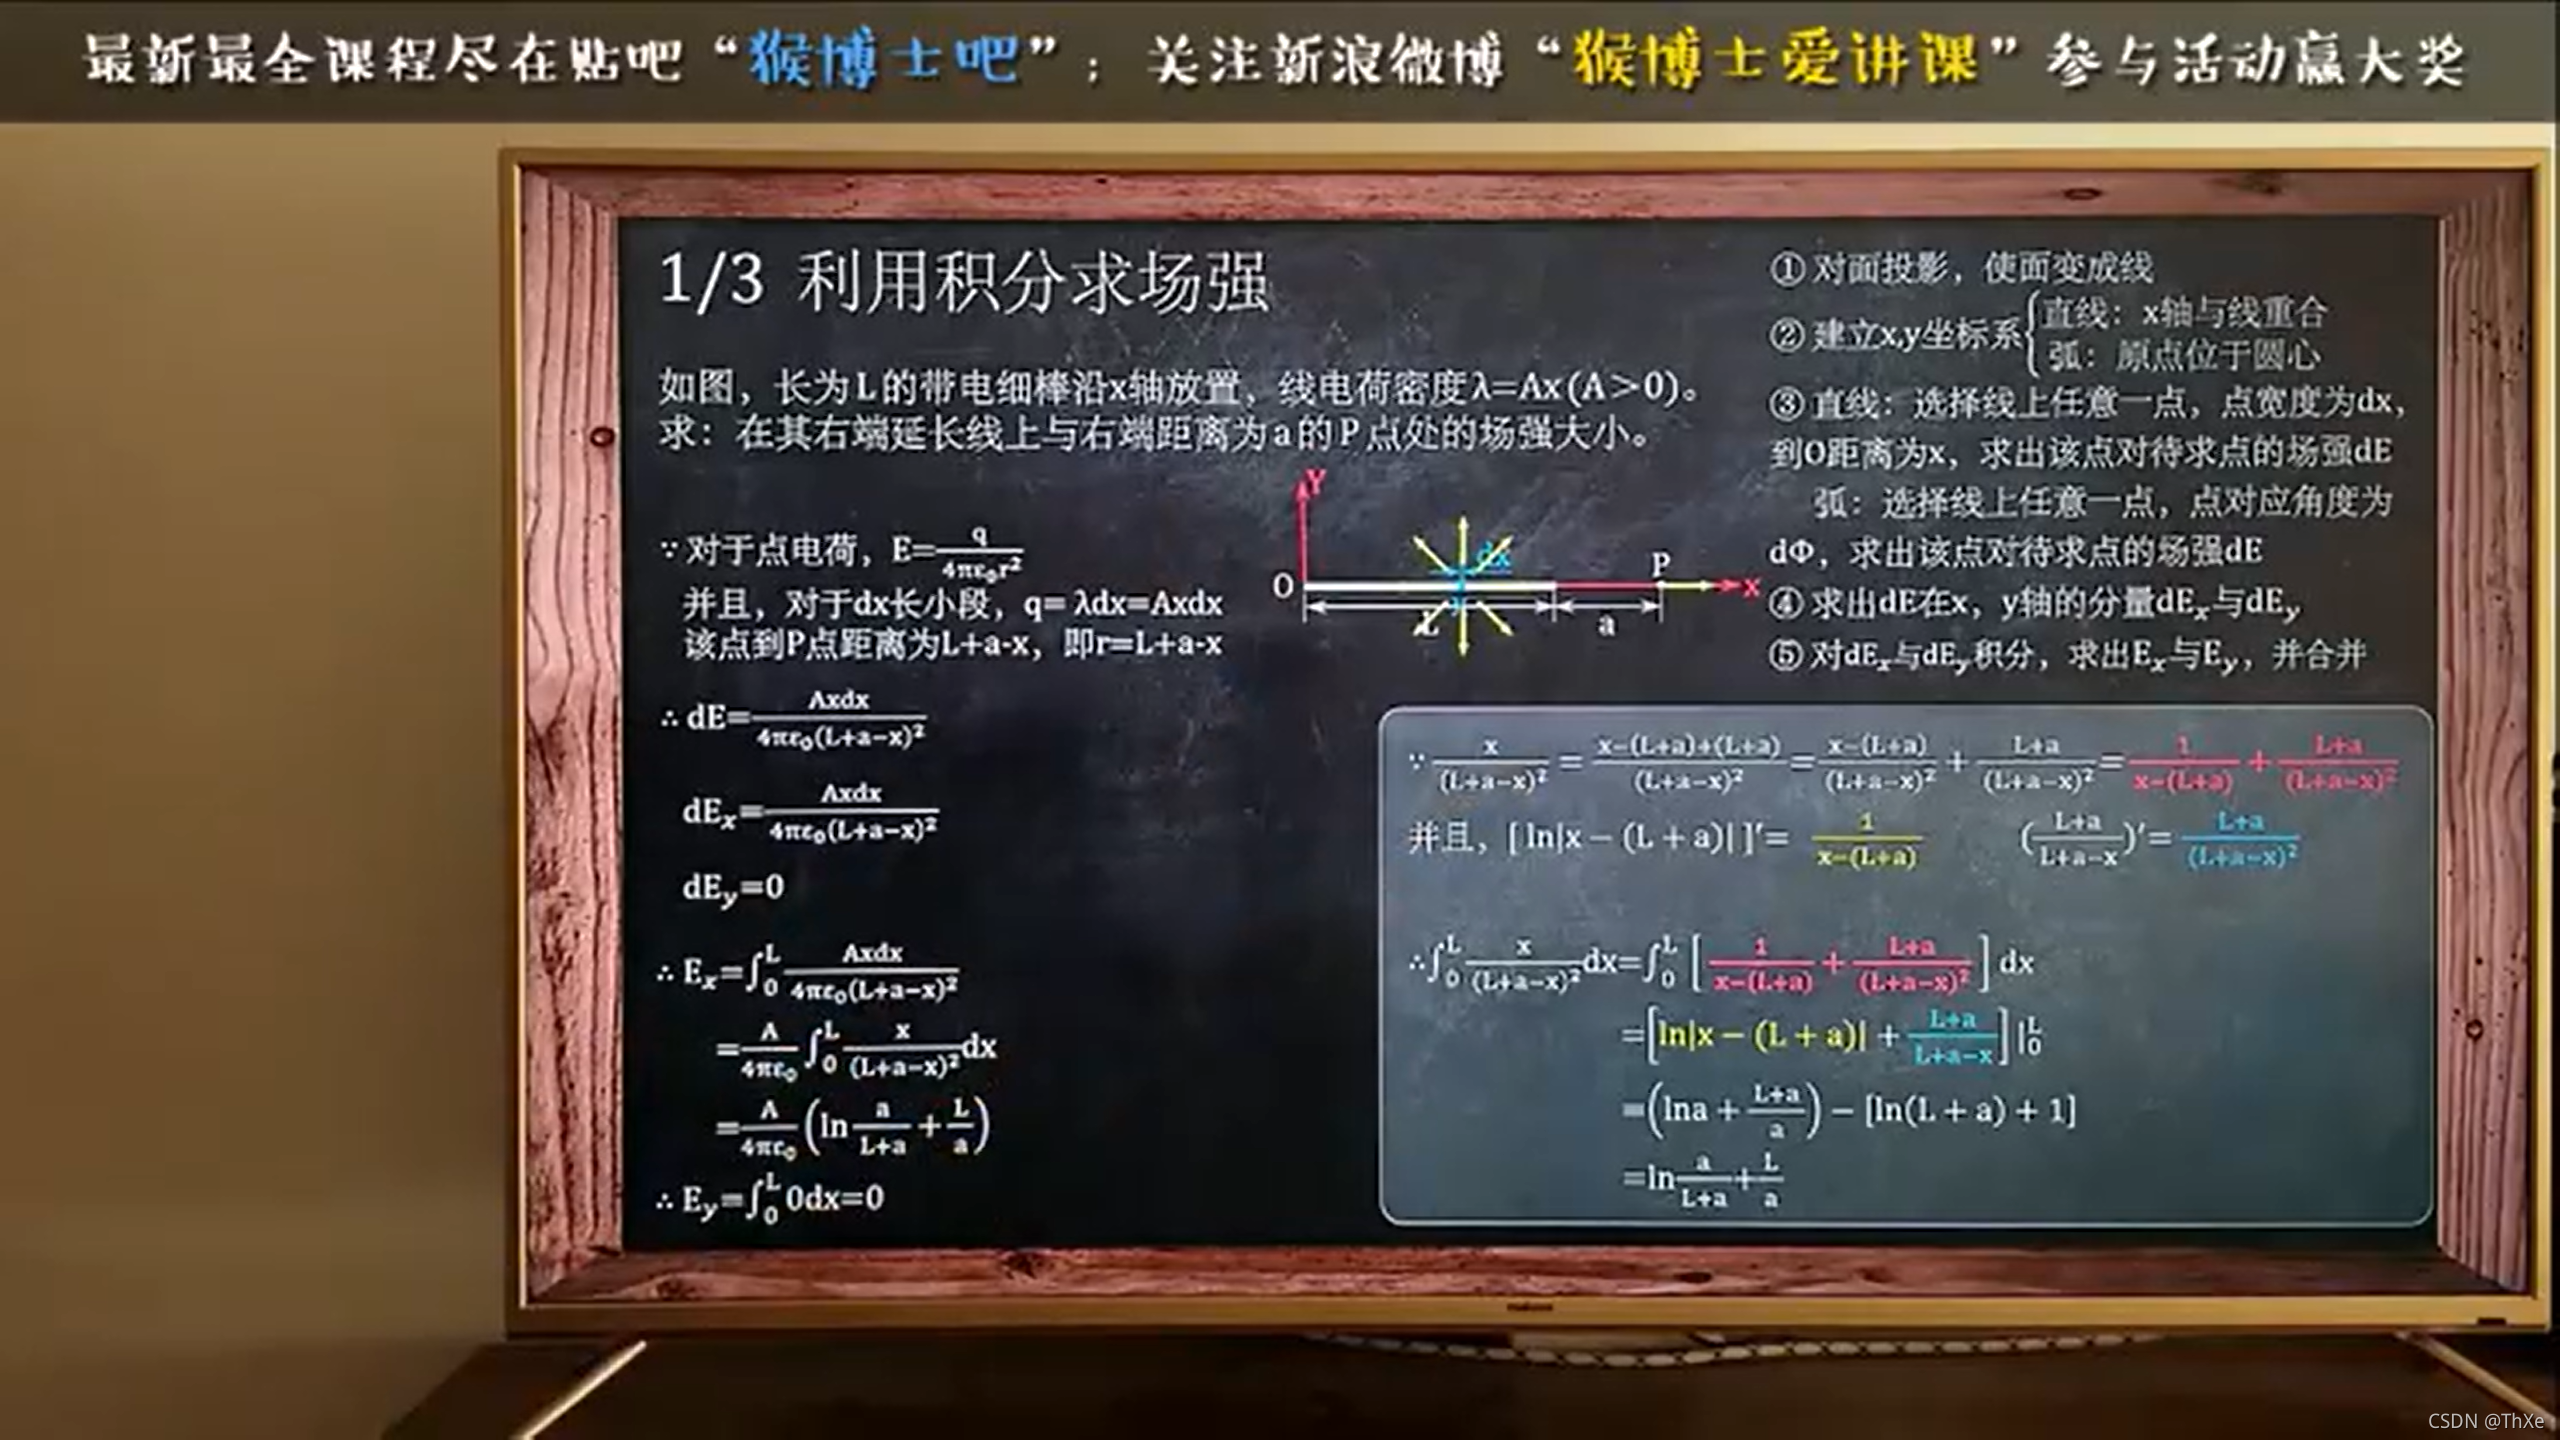 最新最全课程尽在贴吧“猴博士吧”；关注新浪微博“猴博士爱讲课”参与活动赢大奖
1/3 利用积分求场强
如图，长为L的带电细棒沿x轴放置，线电荷密度λ=Ax(A＞0)。
求：在其右端延长线上与右端距离为a的P点处的场强大小。
∵对于点电荷，E=q/(4πε₀r²)
并且，对于dx长小段，q=λdx=Axdx
该点到P点距离为L+a-x，即r=L+a-x
∴dE=Axdx/(4πε₀(L+a−x)²)
dEₓ=Axdx/(4πε₀(L+a−x)²)
dE_y=0
∴Eₓ=∫₀ᴸ Axdx/(4πε₀(L+a−x)²)
=A/(4πε₀) ∫₀ᴸ x/(L+a−x)² dx
=A/(4πε₀) (ln a/(L+a) + L/a)
∴E_y=∫₀ᴸ 0dx=0
Y
dx
O
P
x
L
a
①对面投影，使面变成线
②建立x,y坐标系{直线：x轴与线重合
弧：原点位于圆心
③直线：选择线上任意一点，点宽度为dx，
到O距离为x，求出该点对待求点的场强dE
弧：选择线上任意一点，点对应角度为
dΦ，求出该点对待求点的场强dE
④求出dE在x，y轴的分量dEₓ与dE_y
⑤对dEₓ与dE_y积分，求出Eₓ与E_y，并合并
∵x/(L+a−x)² = (x−(L+a)+(L+a))/(L+a−x)² = (x−(L+a))/(L+a−x)² + (L+a)/(L+a−x)² = 1/(x−(L+a)) + (L+a)/(L+a−x)²
并且，[ln|x−(L+a)|]′= 1/(x−(L+a)) ((L+a)/(L+a−x))′= (L+a)/(L+a−x)²
∴∫₀ᴸ x/(L+a−x)² dx=∫₀ᴸ [1/(x−(L+a)) + (L+a)/(L+a−x)²] dx
=[ln|x−(L+a)| + (L+a)/(L+a−x)]|₀ᴸ
=(lna + (L+a)/a) − [ln(L+a)+1]
=ln a/(L+a) + L/a
CSDN @ThXe